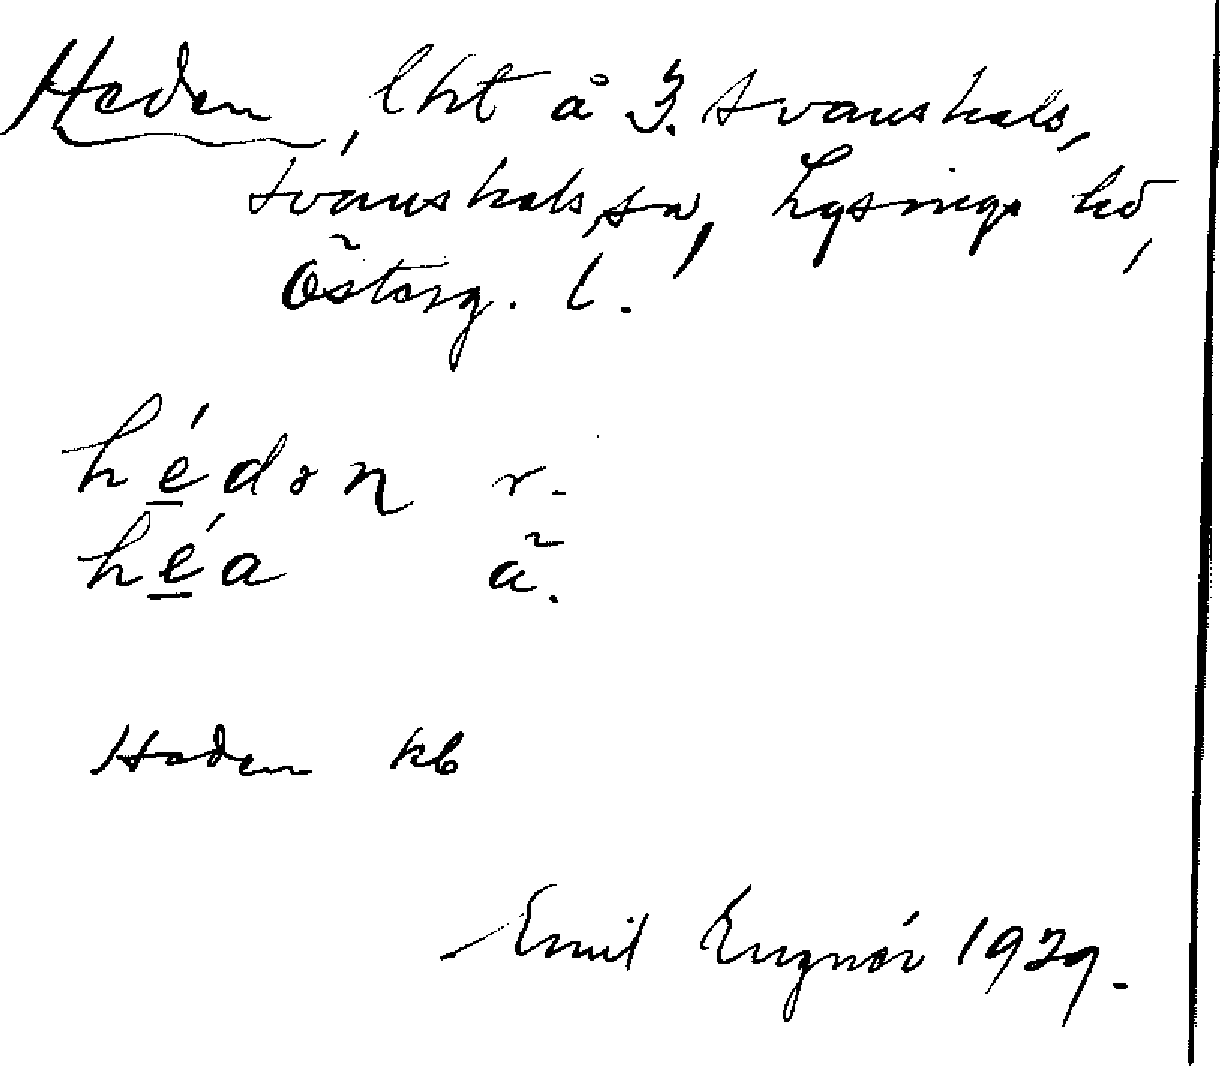 Heden, lht å 3. Svanshals,
Svanshals sn, Lysings hd,
Österg. l.
hédən r.
héa ä.
Heden kb
Emil Lugnér 1929.